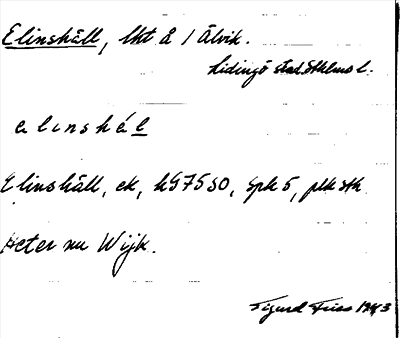 Elinshäll, lht å 1 Älvik.
Lidingö stad, Sthlms l.
e l i n s h ä́ l
Elinshäll, ek, h5750, Spk 5, plk sth
Heter nu Wijk.
Sigurd Fries 1943